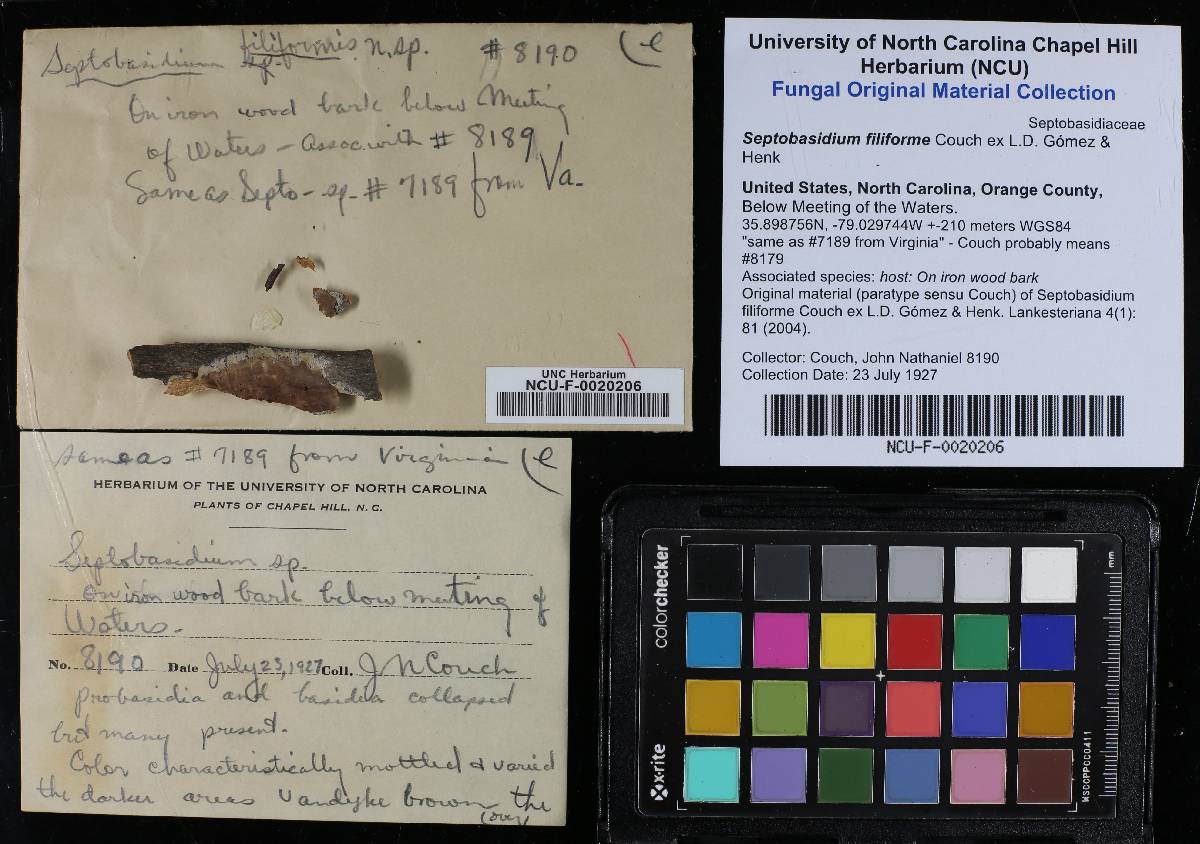 Septobasidium filiformis n. sp. #8190 (e
sp.
On iron wood bark below Meeting
of Waters - Assoc. with # 8189
Same as Septo - sp - # 7189 from Va.
UNC Herbarium
NCU-F-0020206
University of North Carolina Chapel Hill
Herbarium (NCU)
Fungal Original Material Collection
Septobasidiaceae
Septobasidium filiforme Couch ex L.D. Gómez &
Henk
United States, North Carolina, Orange County,
Below Meeting of the Waters.
35.898756N, -79.029744W +-210 meters WGS84
"same as #7189 from Virginia" - Couch probably means
#8179
Associated species: host: On iron wood bark
Original material (paratype sensu Couch) of Septobasidium
filiforme Couch ex L.D. Gómez & Henk. Lankesteriana 4(1):
81 (2004).
Collector: Couch, John Nathaniel 8190
Collection Date: 23 July 1927
NCU-F-0020206
same as # 7189 from Virginia (e
HERBARIUM OF THE UNIVERSITY OF NORTH CAROLINA
PLANTS OF CHAPEL HILL, N. C.
Septobasidium sp.
On iron wood bark below meeting of
Waters -
No. 8190 Date July 23, 1927 Coll. J N Couch
probasidia and basidia collapsed
but many present.
Color characteristically mottled & varied
the darker areas Vandyke brown the
(over)
colorchecker
x-rite
mm
MSCCPPCC0411